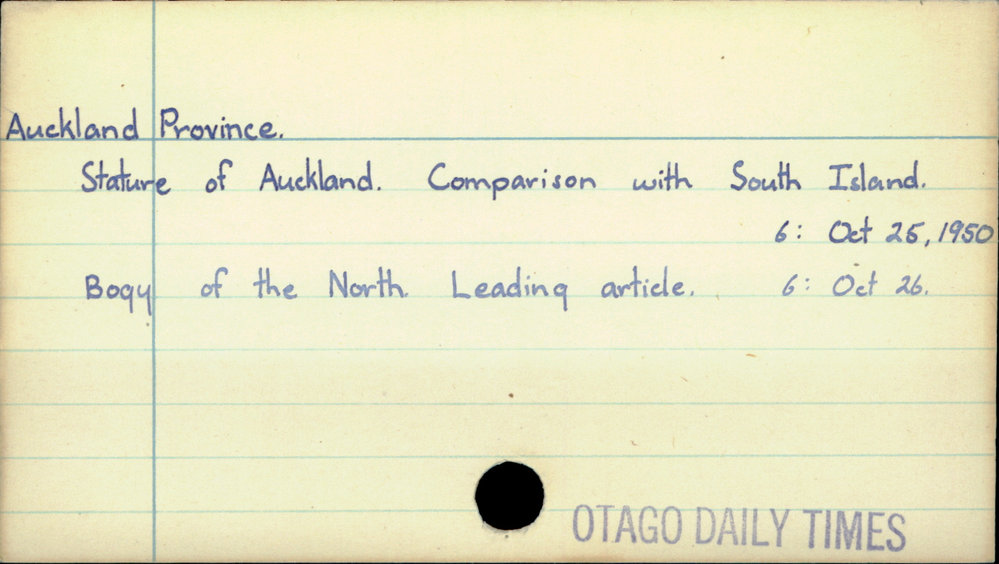 Auckland Province.
Stature of Auckland. Comparison with South Island.
6: Oct 25, 1950
Bogy of the North. Leading article. 6: Oct 26.
OTAGO DAILY TIMES